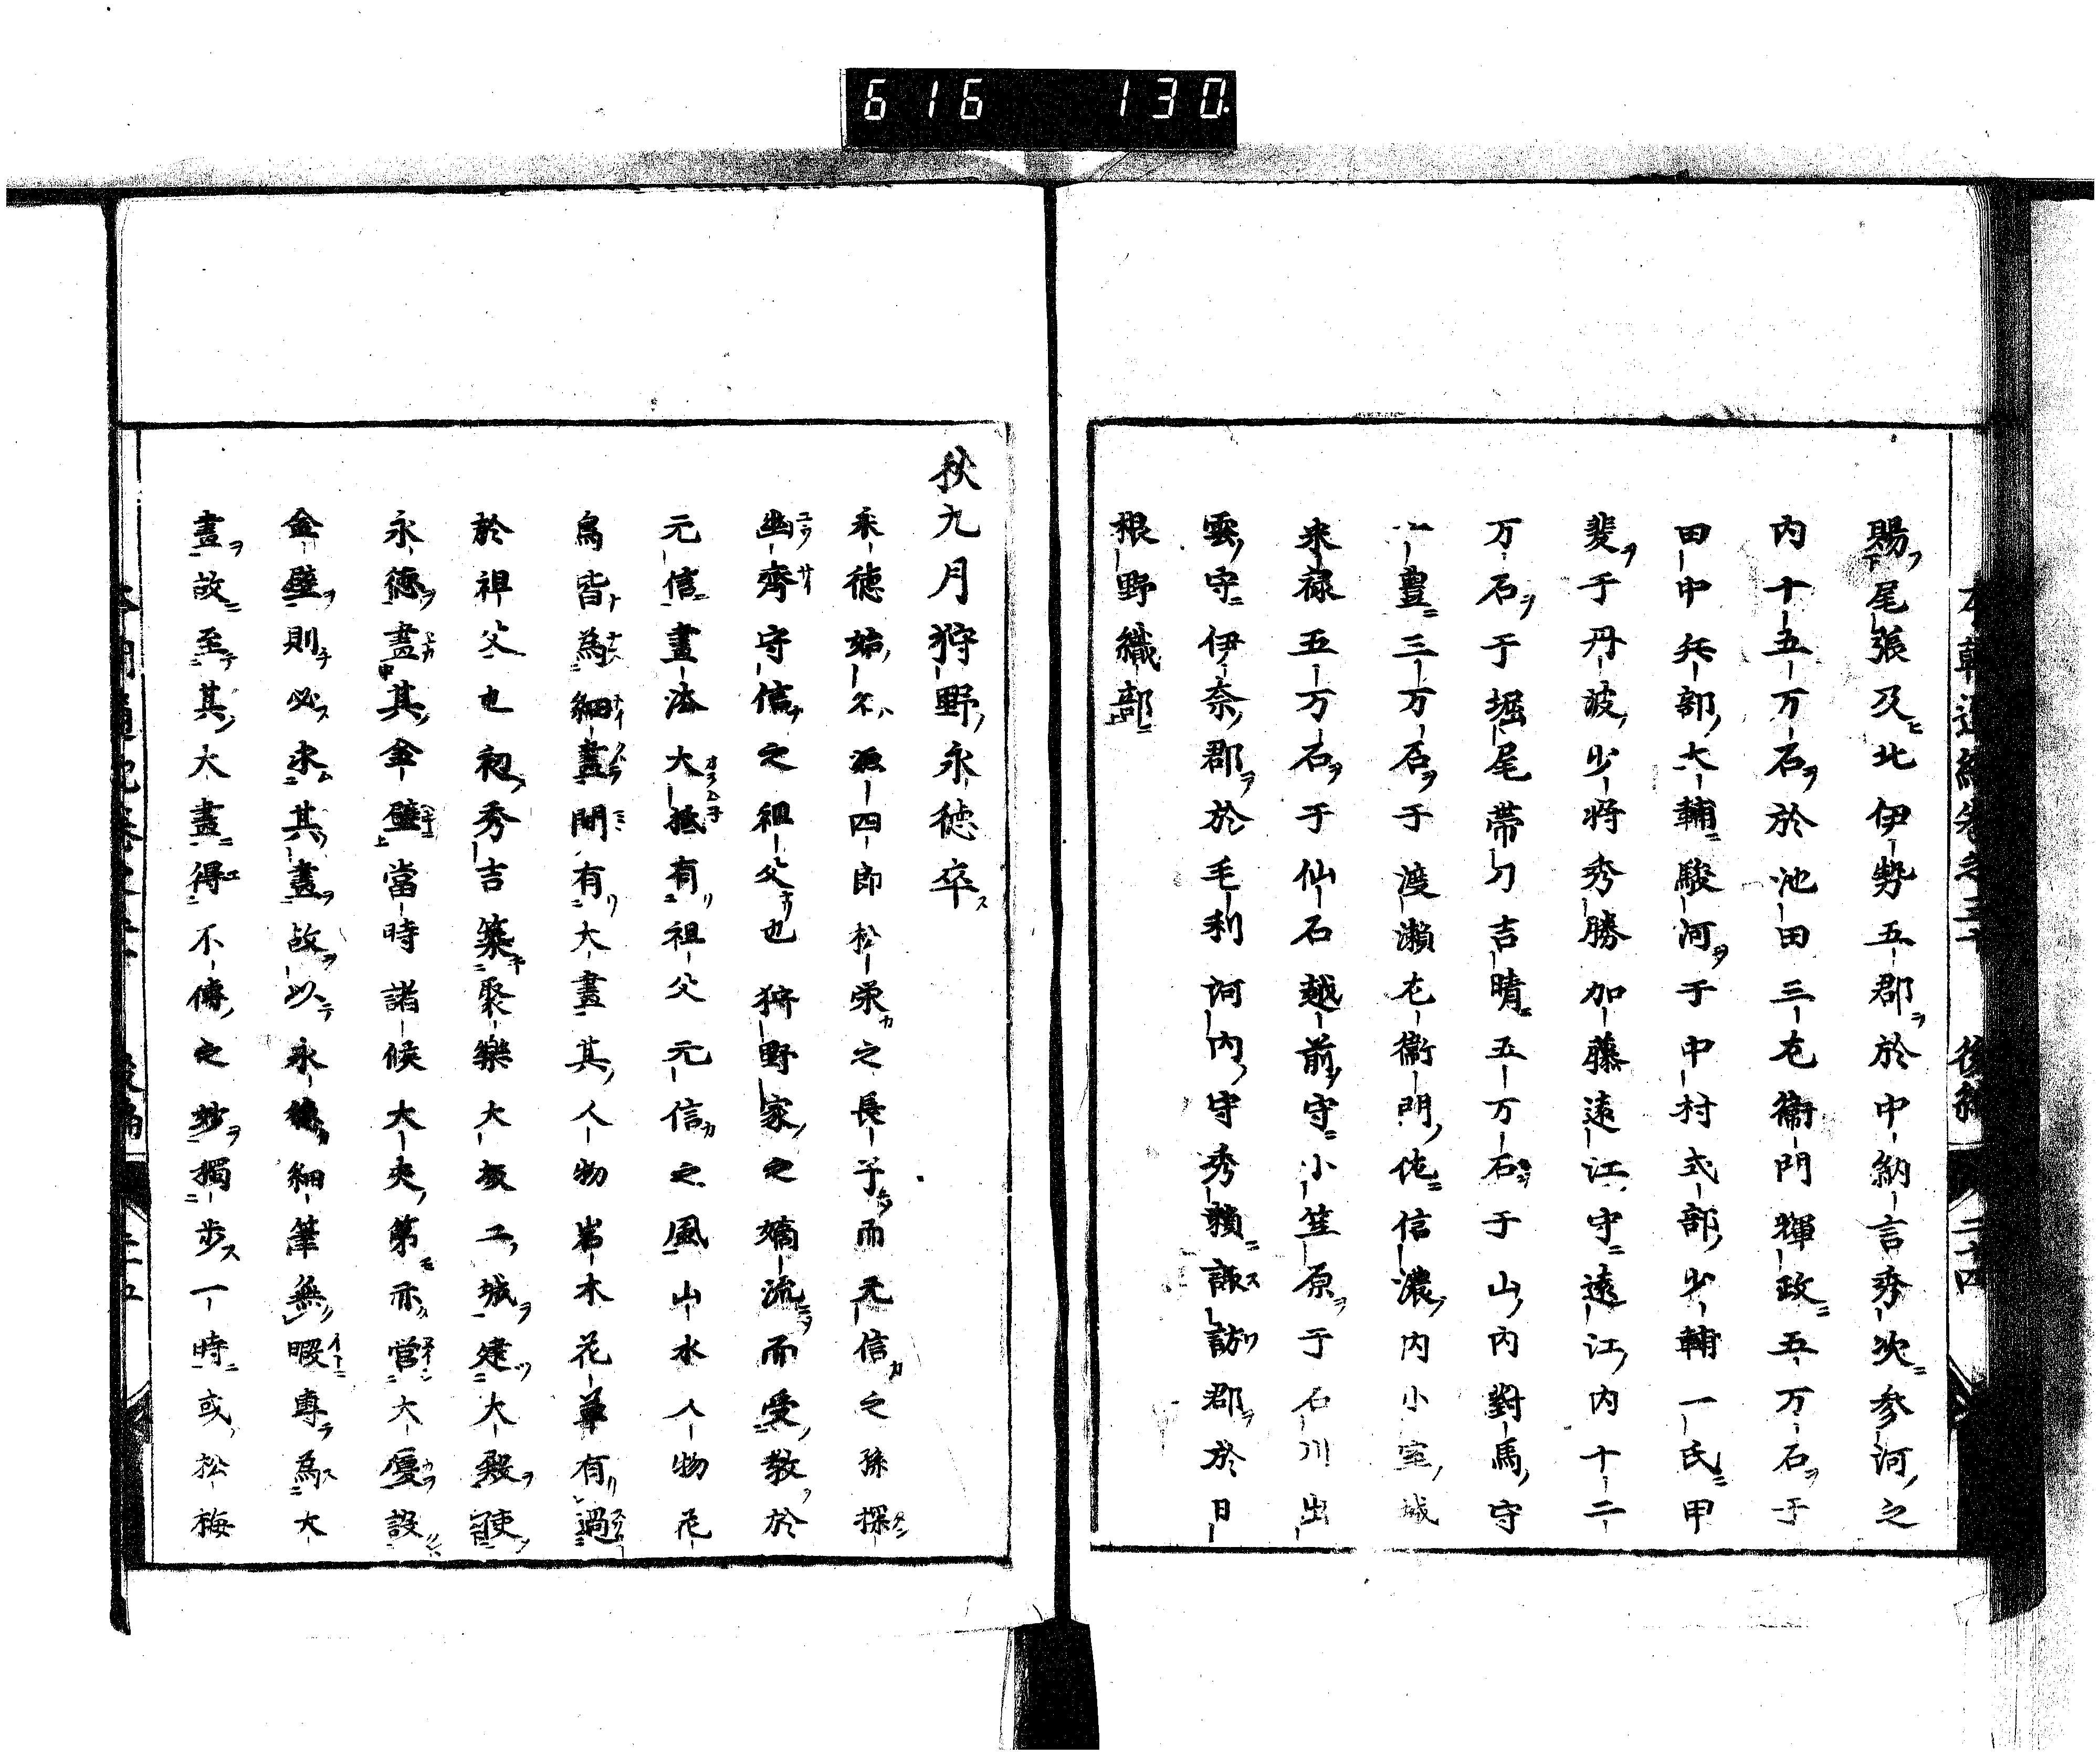 616 130.
賜尾張及北伊勢五郡於中納言秀次參河之
内十五万石於池田三左衛門輝政五万石于
田中兵部大輔駿河于中村式部少輔一氏甲
斐于丹波少將秀勝加藤遠江守遠江内十二
万石于堀尾帶刀吉晴五万石于山内對馬守
一豊三万石于渡瀬左衛門佐信濃内小室城
来禄五万石于仙石越前守小笠原于石川出
雲守伊奈郡於毛利河内守秀頼諏訪郡於日
根野織部
秋九月狩野永徳卒
永徳始名源四郎松栄之長子而元信之孫探
幽齊守信之祖父也狩野家之嫡流而受教於
元信畫法大抵有祖父元信之風山水人物花
鳥皆為細畫間有大畫其人物岩木花草有過
於祖父也初秀吉築聚樂大坂二城建大殿使
永徳畫其金壁當時諸候大夫第亦営大厦設
金壁則必求其畫故以永徳細筆無暇専為大
畫故至其大畫得不傳之妙獨歩一時或松梅